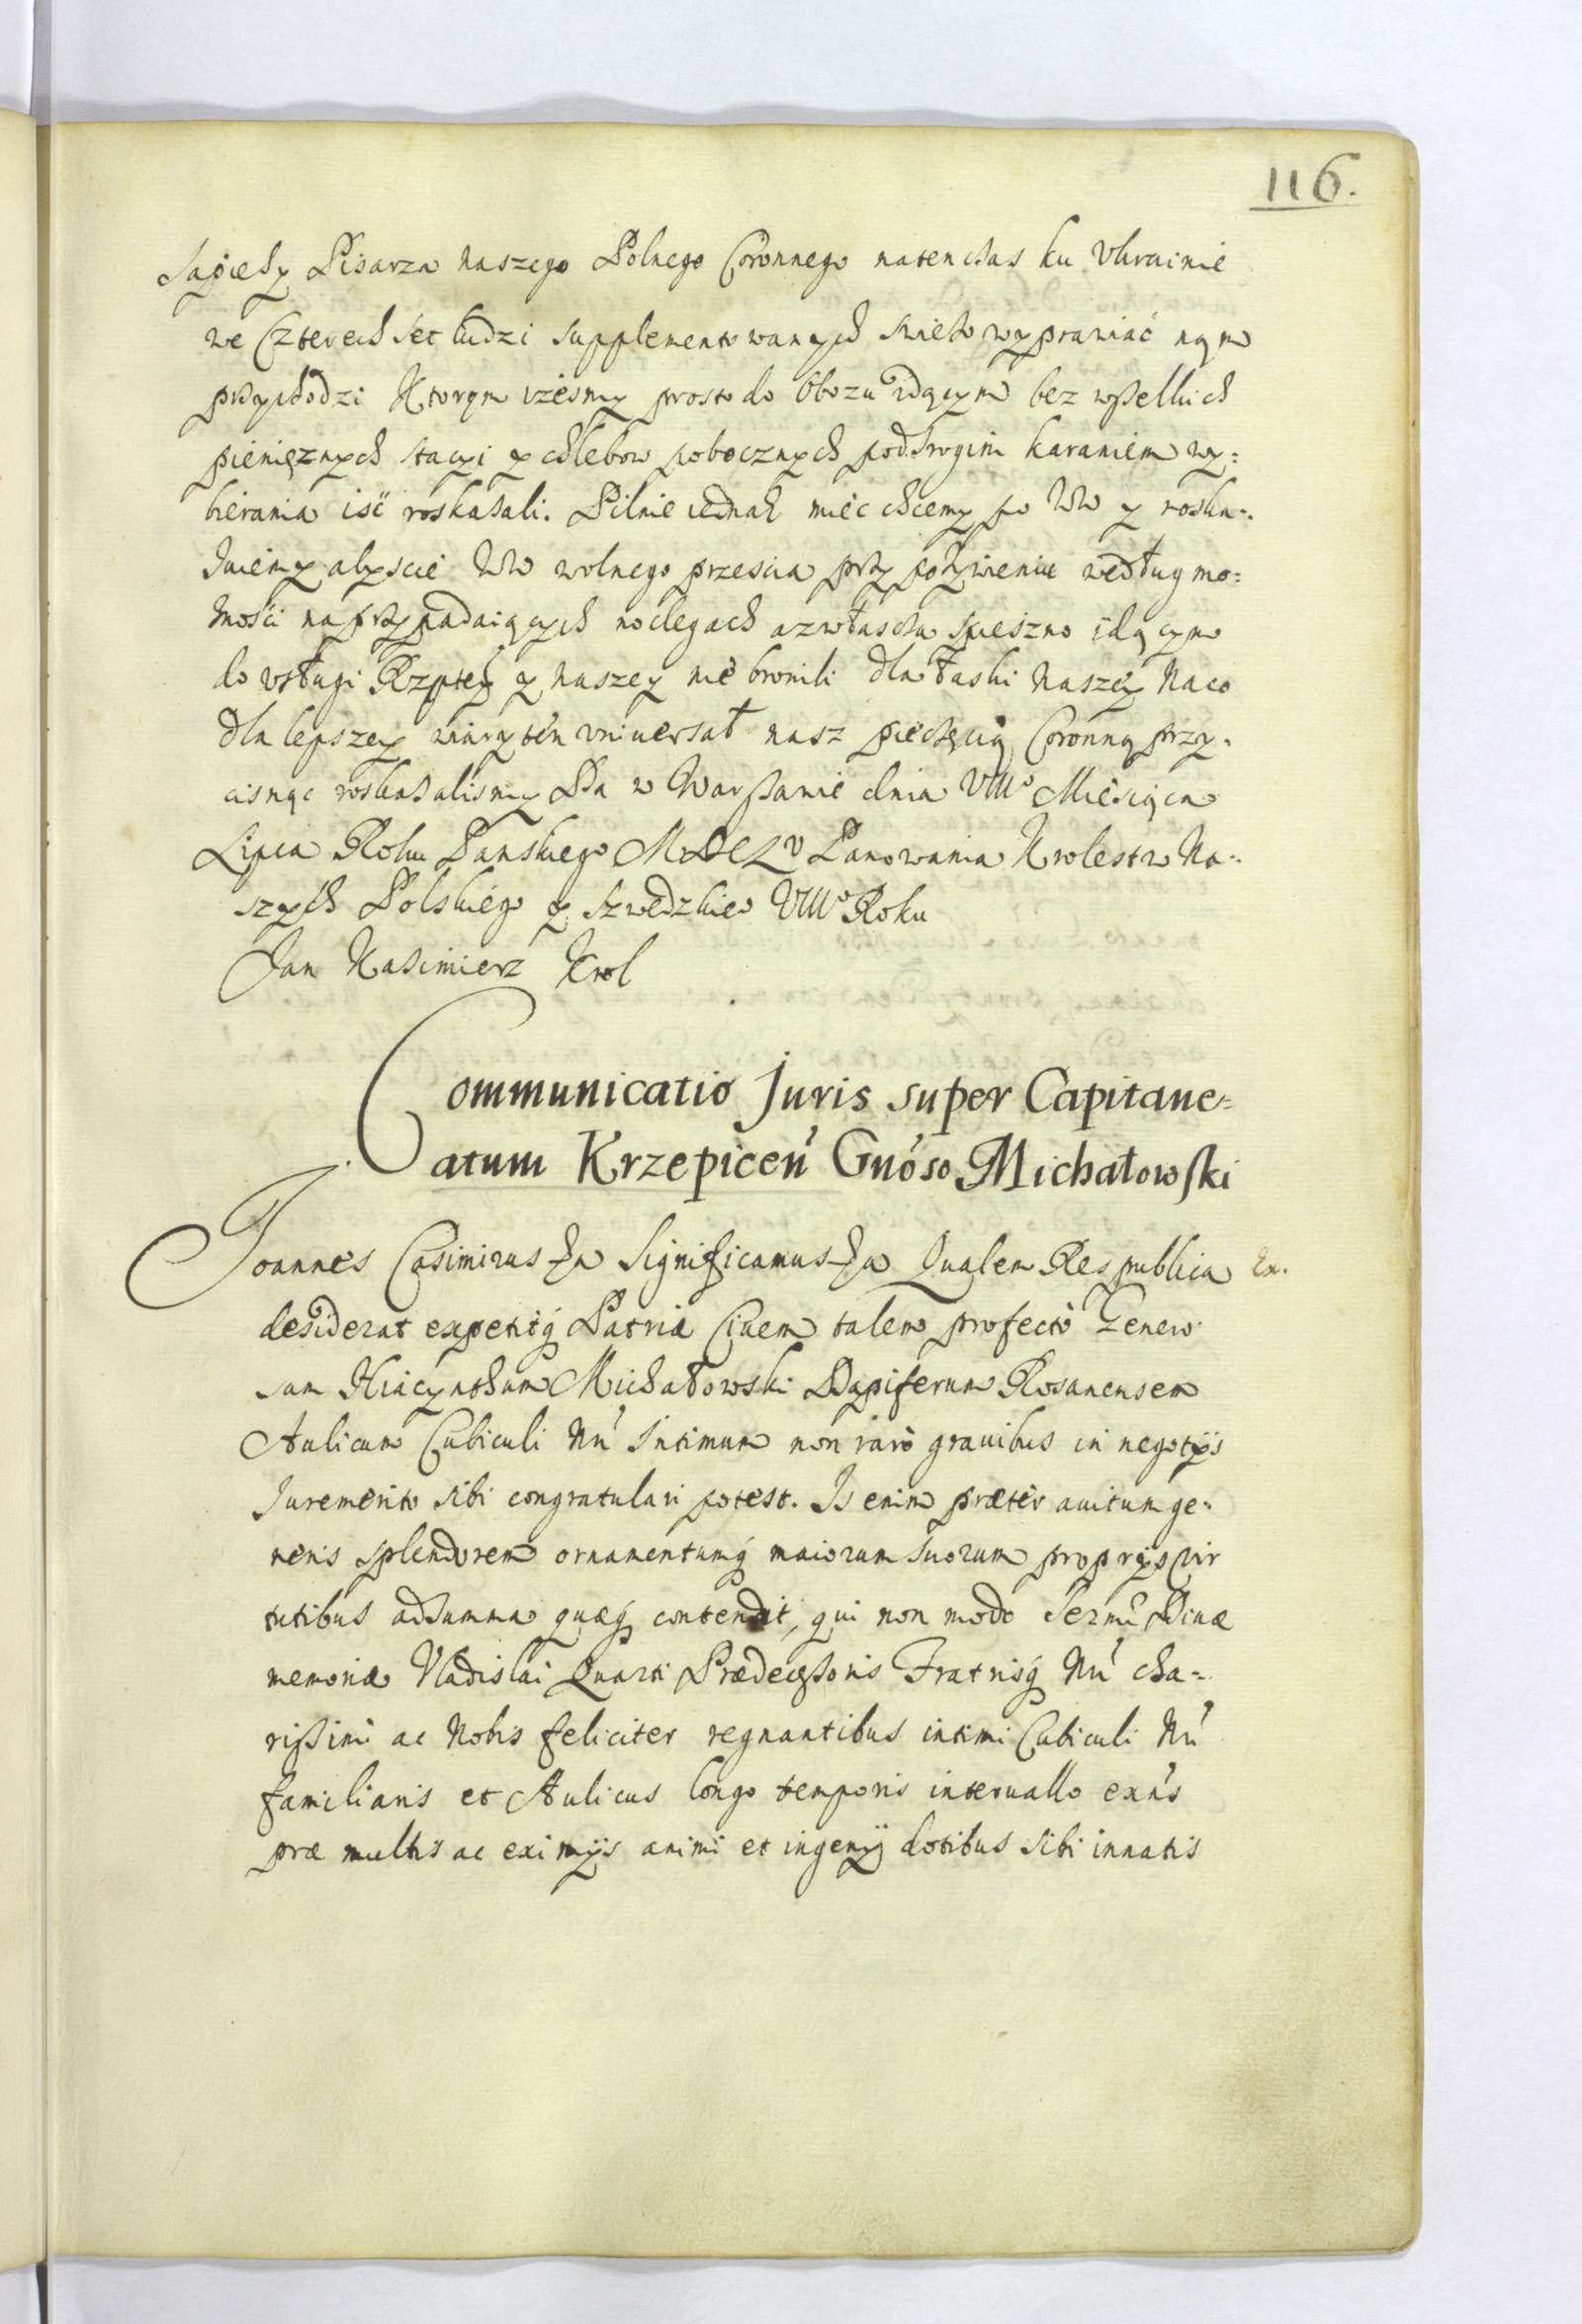 116.
Sapiehy Pisarza naszego Polnego Coronnego natenczas ku Vkrainie
we Czterech set ludzi supplementowanych swiezo wyprawiać nąm
przychodzi Ktorym vżesmy prosto do Obozu idącym bez wszelkich
pieniężnych stacyi y chlebow pobocznych pod srogim karaniem wy=
bierania iść roskazali. Pilnie iednak mieć chcemy po WW y roska=
zuiemy abyscie WW wolnego przescia przy pożywieniu według mo=
żności na przypadaiących noclegach a zwłascza spieszno idącym
do vsługi Rzptey y naszey nie bronili dla łaski naszey Na co
dla lepszey wiary ten vniuersał nasz pieczęcią Coronną przy=
cisnąc roskazalismy Da w Warszawie dnia VIIIo Miesiąca
Lipca Roku Panskiego MDCLV Panowania Krolestw Na=
szych Polskiego y Szwedzkieo VIIIo Roku
Jan Kazimierz Krol
Communicatio Juris super Capitane=
atum Krzepicen̄ Gnōso Michałowski
Joannes Casimirus &a Significamus &a Qualem Respublica Ex.
desiderat expetitq́ Patria Ciuem talem profectò Genero
sum Hiacynthum Michałowski Dapiferum Rosanensem
Aulicum Cubiculi Nr̄i Intimum non raro grauibus in negotys
Iuremerito sibi congratulari potest. Is enim præter auitum ge=
neris splendorem ornamentumq́ maiorum suorum propryis vir
tutibus ad summa quæq́ contendit, qui non modo Sermi Diuæ
memoriæ Vladislai Quarti Prædecessoris Fratrisq́ Nr̄i cha=
rissimi ac Nobis feliciter regnantibus intimi Cubiculi Nr̄i
familiaris et Aulicus longo temporis interuallo exn̄s
præ multis ac eximÿs animi et ingenÿ dotibus sibi innatis